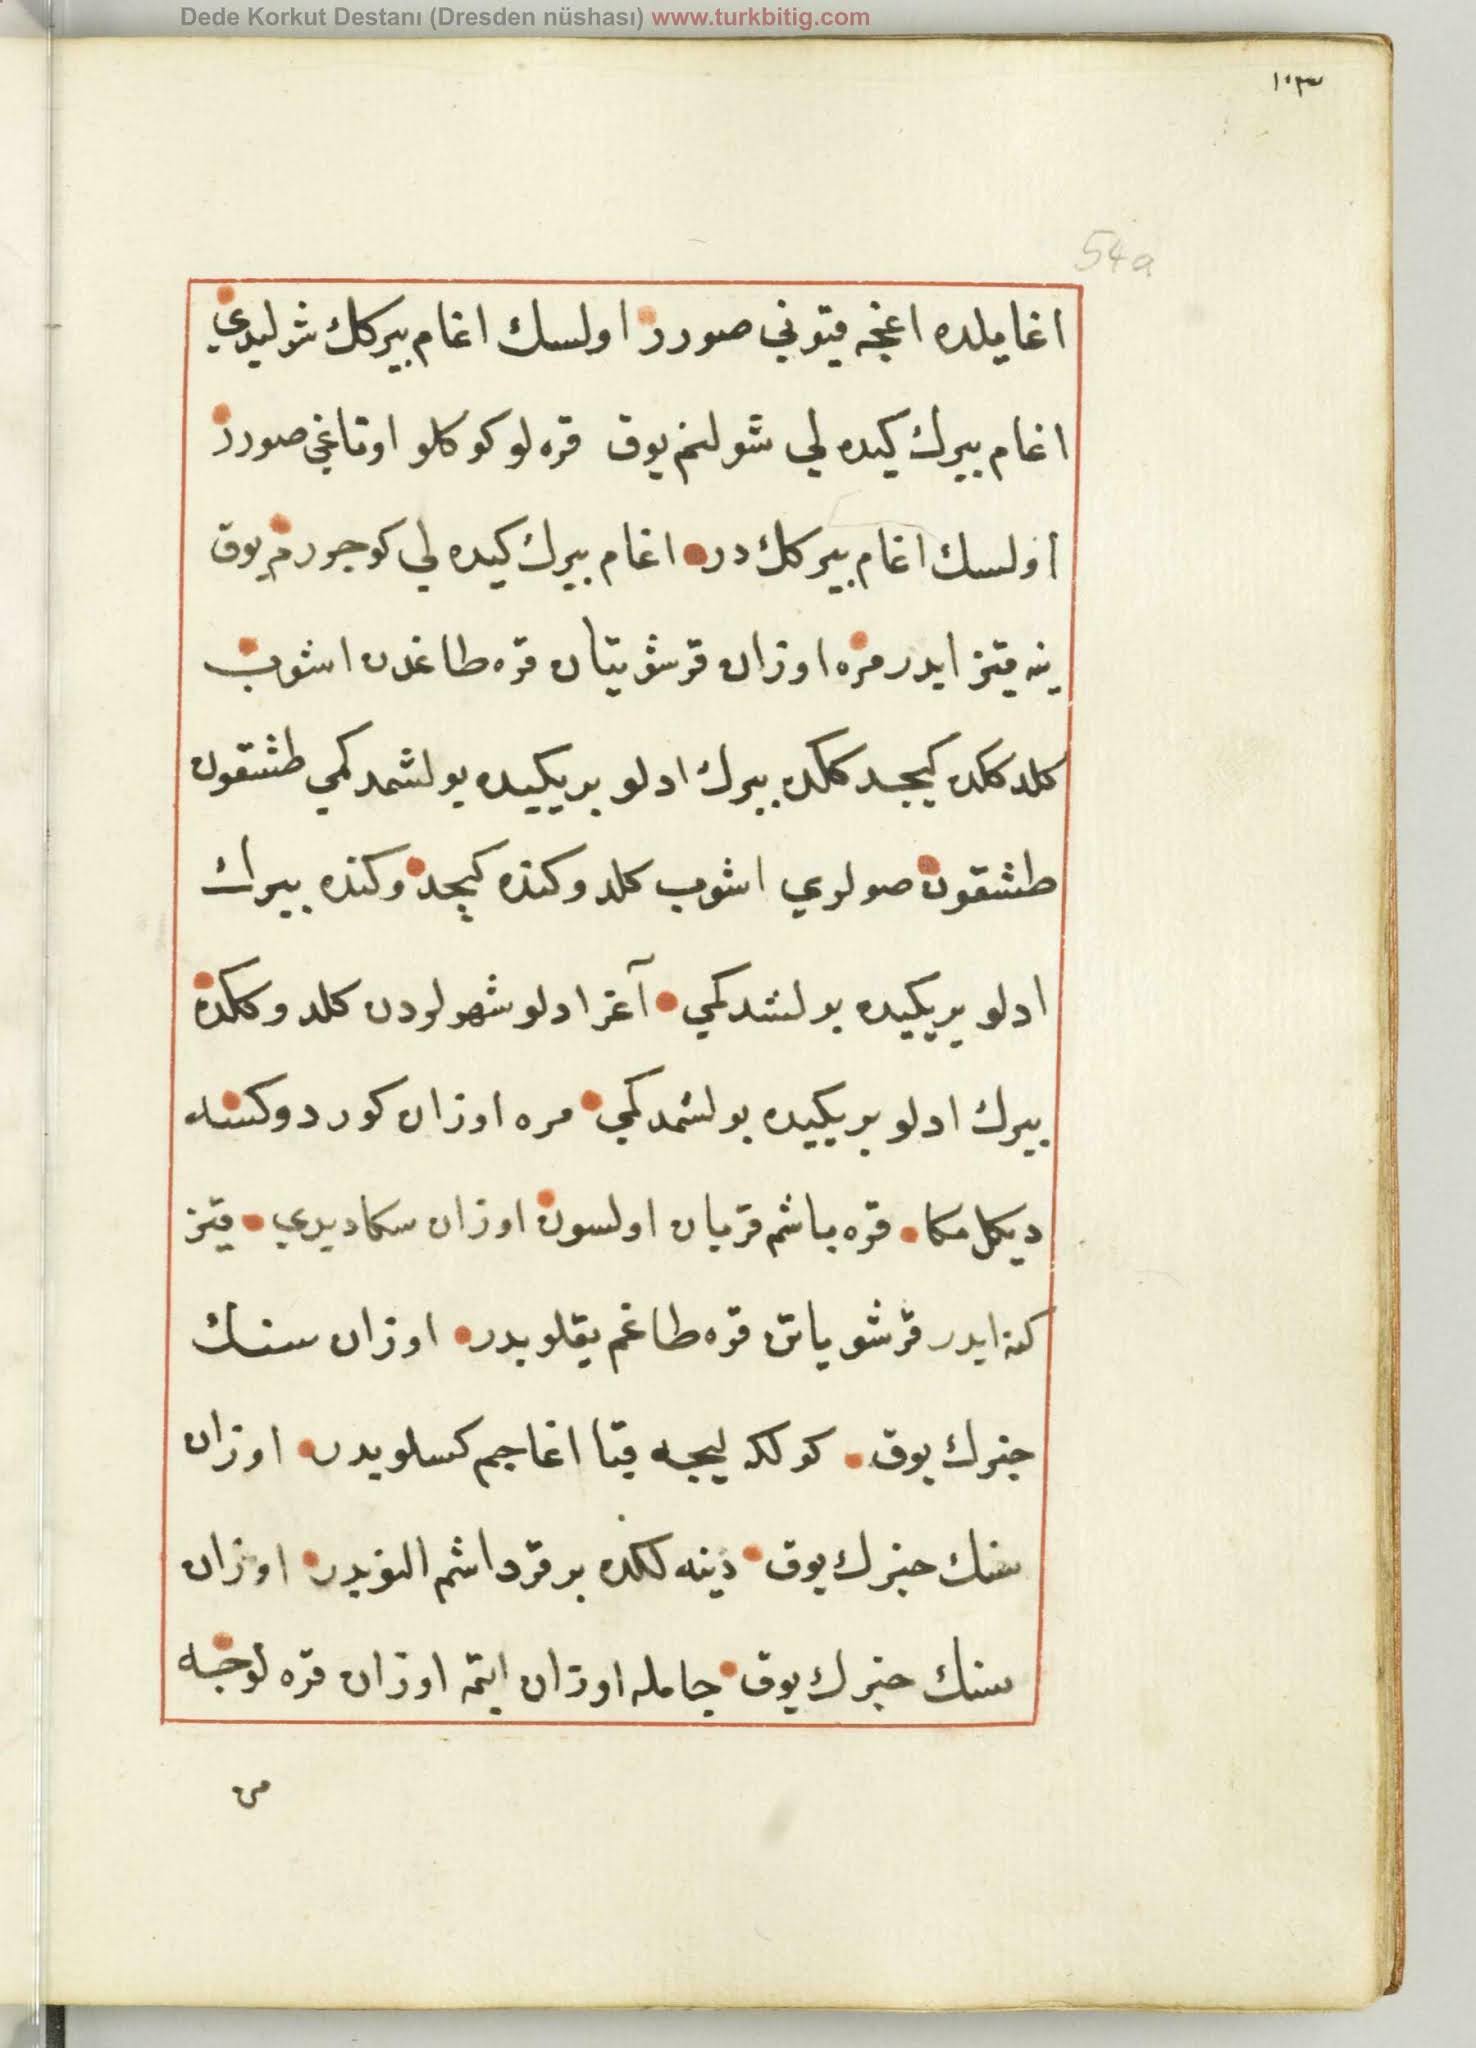 Dede Korkut Destanı (Dresden nüshası) www.turkbitig.com
١٠٣
54a
اغايلده اغجه قيونى صورر اولسك اغام بيركك شوليدي
اغام بيرك كيده لي شولنم يوق قره لو كوكلو اوتاغى صورر
اولسك اغام بيركك در اغام بيرك كيده لي كوجورم يوق
ينه قيز ايدر مره اوزان قرشو يتان قره طاغدن اشوب
كلد كلكده كيجد كلكده بيرك ادلو بر يكيده بولشمد كمي طشقون
طشقون صولري اشوب كلدوكنده كيچدوكنده بيرك
ادلو بر يكيده بولشمد كمي آغز ادلو شهولردن كلدوكلكده
بيرك ادلو بر يكيده بولشمد كمي مره اوزان كوردوكسه
ديكل مكا قره باشم قربان اولسون اوزان سكا ديدي قيز
كنه ايدر قرشو ياتن قره طاغم يقلوبدر اوزان سنك
خبرك يوق كولكه ليجه قبا اغاجم كسلوبدر اوزان
سنك خبرك يوق دينه لكده بر قرداشم النوبدر اوزان
سنك خبرك يوق چامله اوزان ايتمه اوزان قره لوجه
من